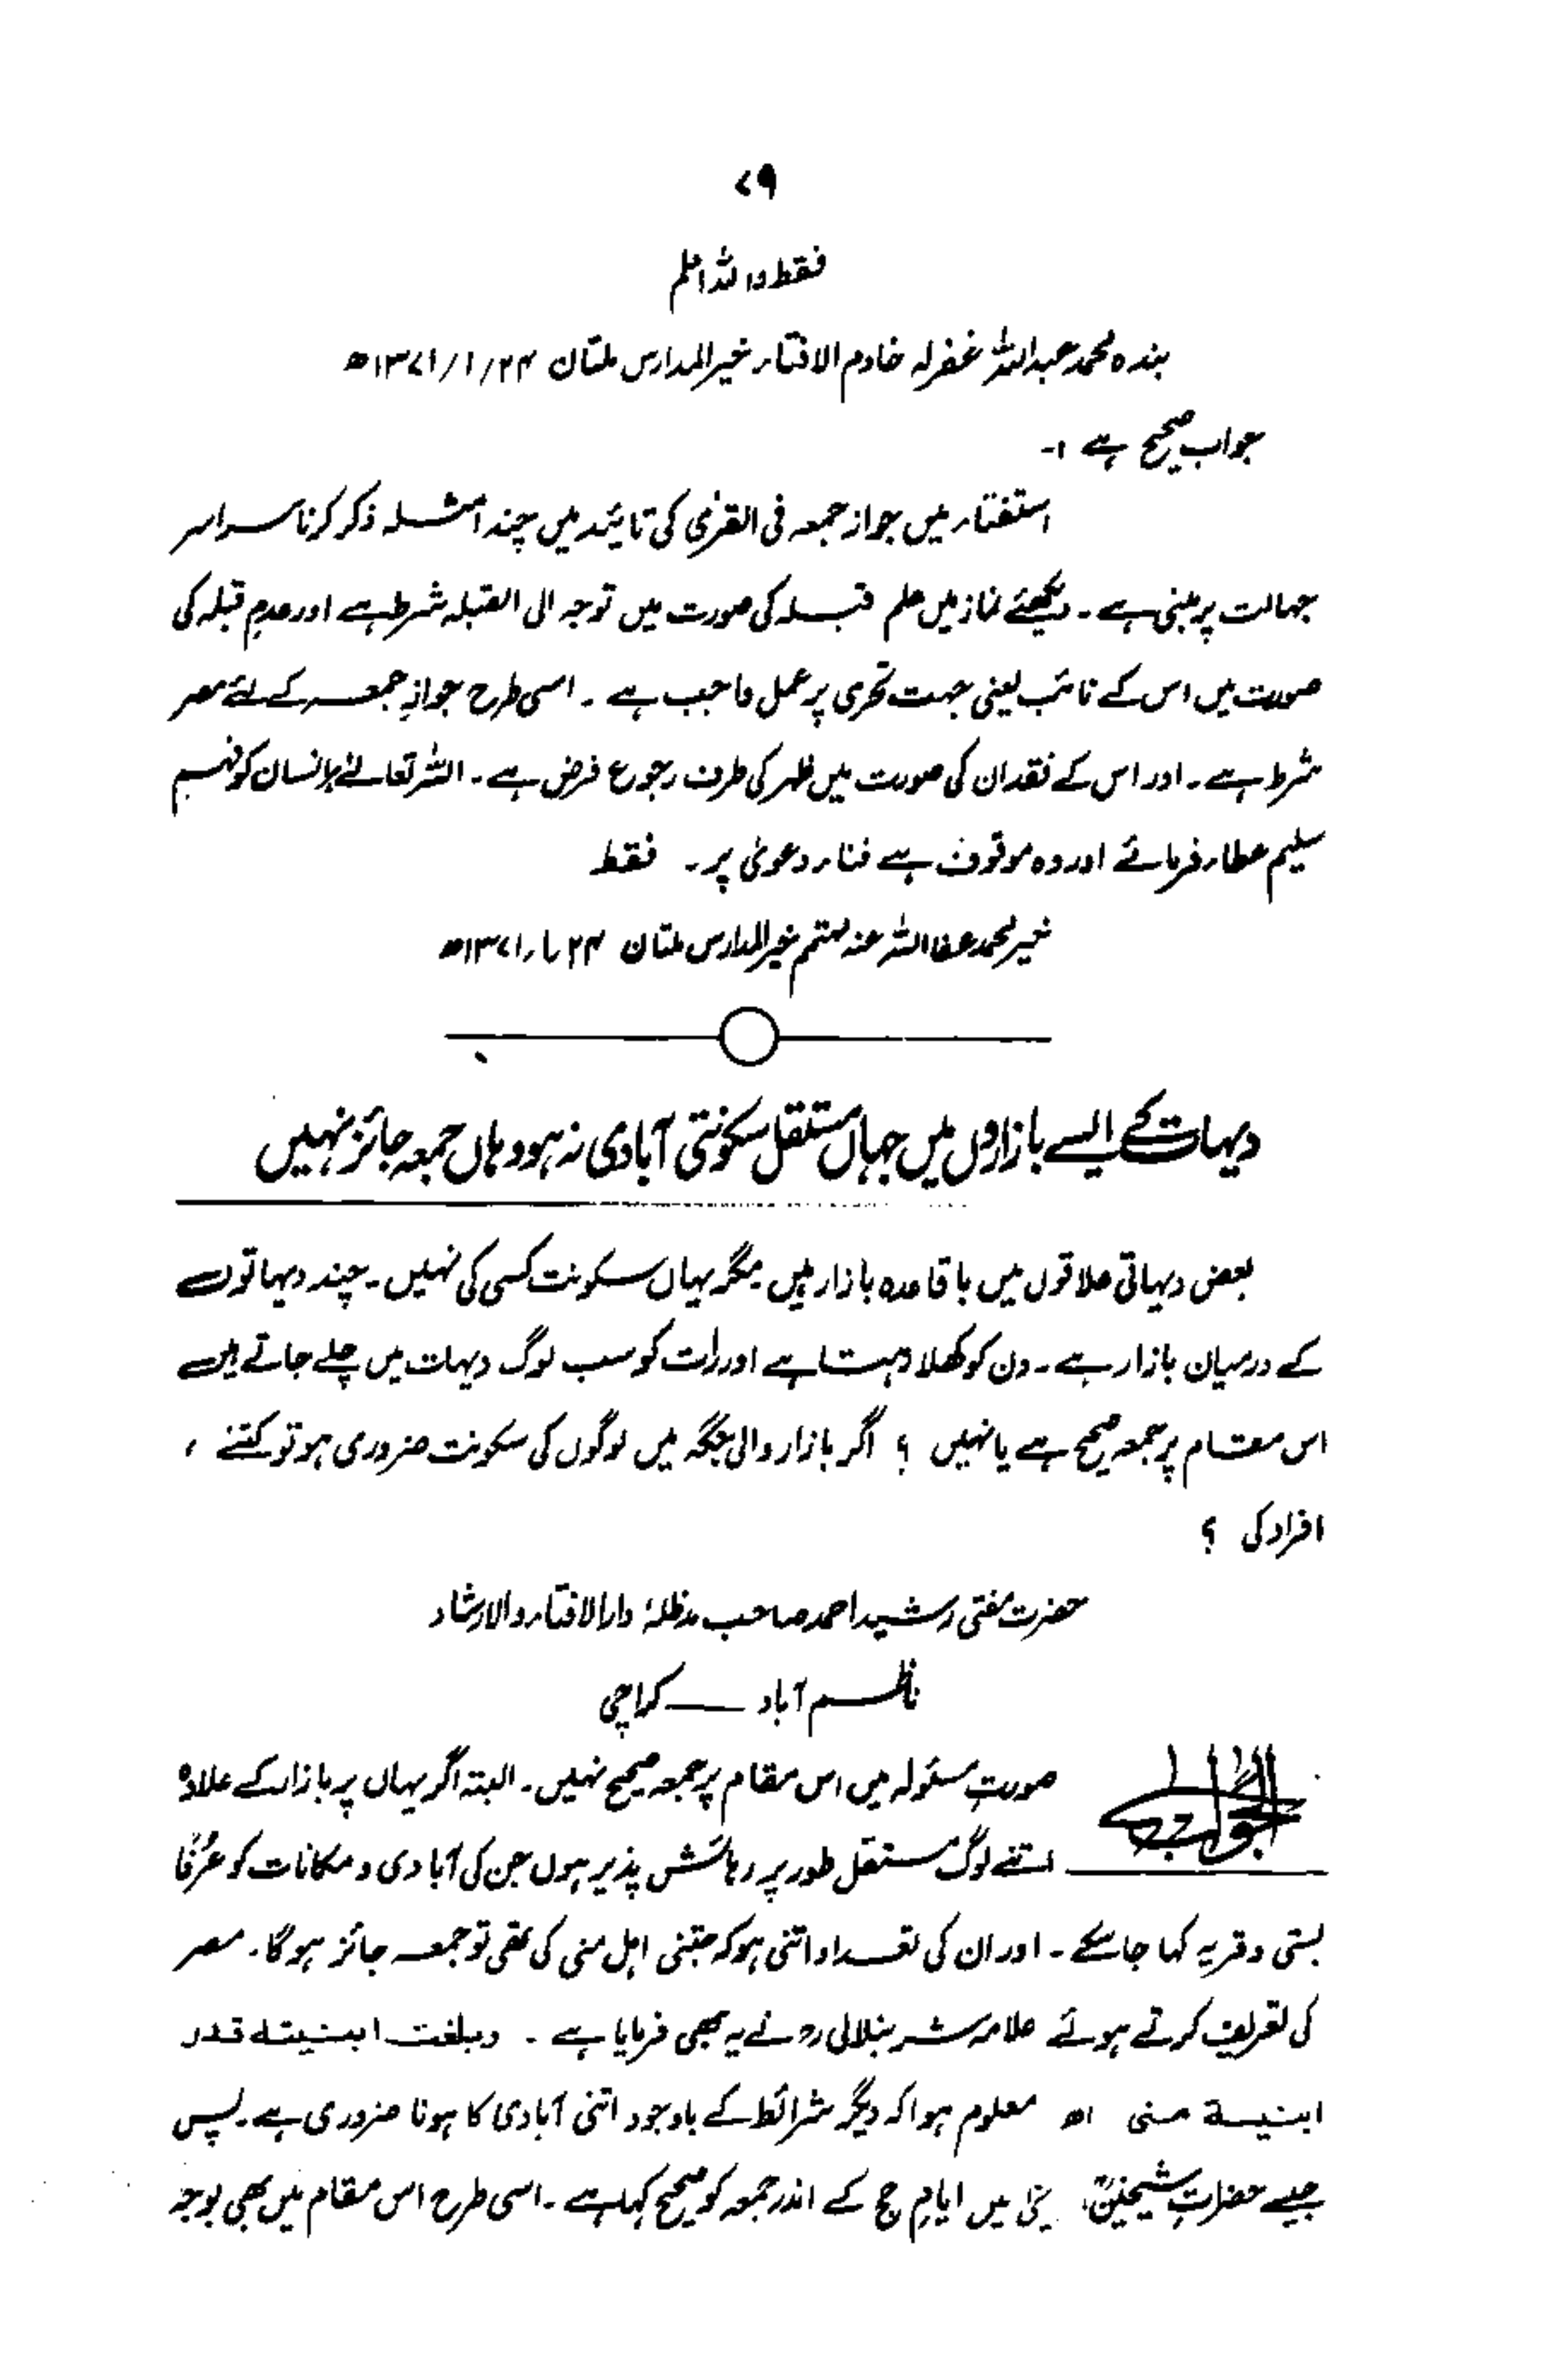 ۷۹
فقط واللہ اعلم
بندہ محمد عبداللہ غفرلہ خادم الافتاء خیرالمدارس ملتان ۲۴/۱/۱۳۷۱ھ
جواب صحیح ہے :-
استفتاء میں جواز جمعہ فی القریٰ کی تائید میں چند امثلہ ذکر کرنا سراسر
جہالت پر مبنی ہے ۔ دیکھئے نماز میں علم قبلہ کی صورت میں توجہ الی القبلہ شرط ہے اور عدم قبلہ کی
صورت میں اس کے نائب یعنی جہت تحری پر عمل واجب ہے ۔ اسی طرح جوازِ جمعہ کے لئے مصر
شرط ہے ۔ اور اس کے فقدان کی صورت میں ظہر کی طرف رجوع فرض ہے ۔ اللہ تعالےٰ ہر انسان کو فہم
سلیم عطاء فرمائے اور وہ موقوف ہے فناء دعویٰ پر ۔ فقط
خیر محمد عفا اللہ عنہ مہتمم خیرالمدارس ملتان ۲۴/۱/۱۳۷۱ھ
دیہات کے ایسے بازاروں میں جہاں مستقل سکونتی آبادی نہ ہو وہاں جمعہ جائز نہیں
بعض دیہاتی علاقوں میں باقاعدہ بازار ہیں مگر یہاں سکونت کسی کی نہیں ۔ چند دیہاتوں
کے درمیان بازار ہے ۔ دن کو کھلا رہتا ہے اور رات کو سب لوگ دیہات میں چلے جاتے ہیں
اس مقام پر جمعہ صحیح ہے یا نہیں ؟ اگر بازار والی جگہ میں لوگوں کی سکونت ضروری ہو تو کتنے ،
افراد کی ؟
حضرت مفتی رشید احمد صاحب مدظلہٗ دارالافتاء والارشاد
ناظم آباد ــــ کراچی
الجواب صورتِ مسئولہ میں اس مقام پر جمعہ صحیح نہیں ۔ البتہ اگر یہاں پر بازار کے علاوہ
اتنے لوگ مستقل طور پر رہائش پذیر ہوں جن کی آبادی و مکانات کو عرفًا
بستی و قریہ کہا جا سکے ۔ اور ان کی تعداد اتنی ہو کہ جتنی اہل منی کی تھی تو جمعہ جائز ہو گا ۔ مصر
کی تعریف کرتے ہوئے علامہ شرنبلالی رہ نے یہ بھی فرمایا ہے ۔ وبلغت ابنیتہ قدر
ابنیة منی اھ معلوم ہوا کہ دیگر شرائط کے باوجود اتنی آبادی کا ہونا ضروری ہے ۔ پس
جیسے حضراتِ شیخینؒ میں ایامِ حج کے اندر جمعہ کو صحیح کہا ہے ۔ اسی طرح اس مقام میں بھی بوجہ